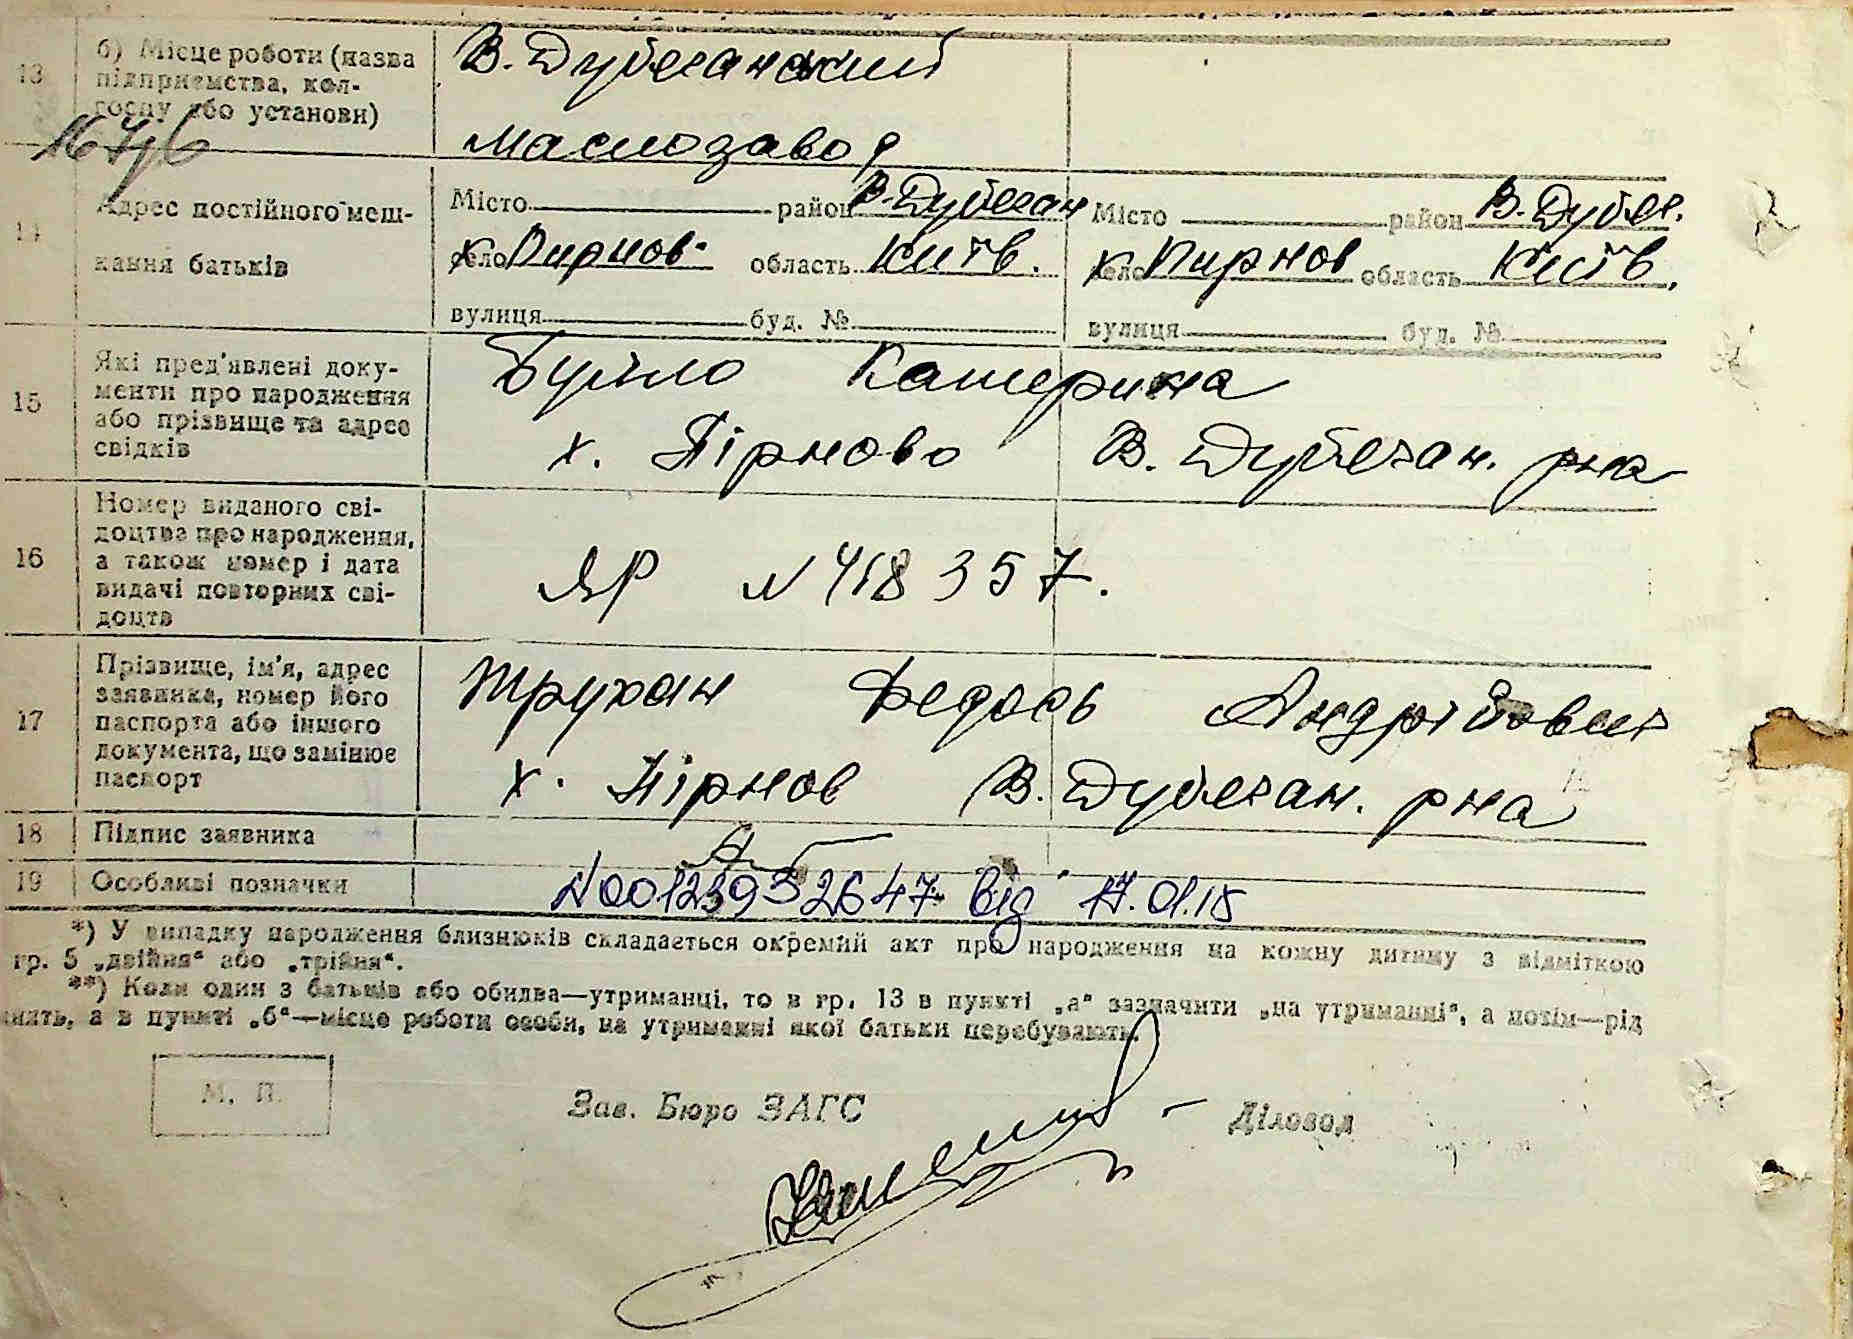 13 б) Місце роботи (назва підприємства, колгоспу або установи)
В. Дубечанський
маслозавод
14 Адрес постійного мешкання батьків
Місто район В. Дубечан Місто район В. Дубеч.
х село Пирнов область Київ. х село Пирнов область Київ.
вулиця буд. № вулиця буд. №
15 Які пред'явлені документи про народження або прізвище та адрес свідків
Буйло Катерина
х. Пірново В. Дубечан. рна
16 Номер виданого свідоцтва про народження, а також номер і дата видачі повторних свідоцтв
ЯР N 418357.
17 Прізвище, ім'я, адрес заявника, номер його паспорта або іншого документа, що замінює паспорт
Трухан Федось Андрійович
х. Пірнов В. Дубечан. рна
18 Підпис заявника
19 Особливі позначки
N 00123952647 від 17.01.18
*) У випадку народження близнюків складається окремий акт про народження на кожну дитину з відміткою
гр. 5 „двійня“ або „трійня“.
**) Коли один з батьків або обидва—утриманці, то в гр. 13 в пункті „а“ зазначити „на утриманні“, а потім—рід
занять, а в пункті „б“—місце роботи особи, на утриманні якої батьки перебувають.
М. П.
Зав. Бюро ЗАГС Діловод